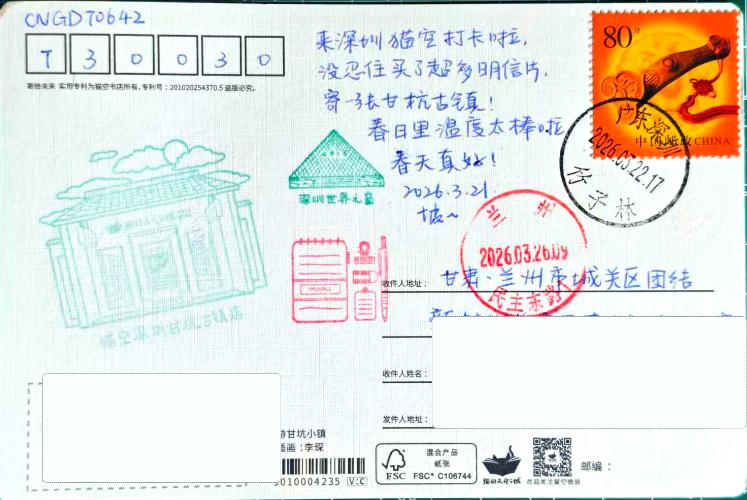 CNGD70642
730030
寄给未来 实用专利为猫空书店所有,专利号:201020254370.5 盗版必究。
来深圳猫空打卡啦,
没忍住买了超多明信片,
寄一张甘杭古镇!
春日里温度太棒啦
春天真好!
2026.3.21.
80分
中国邮政CHINA
广东深圳
2026.03.22.17
竹子林
深圳世界之窗
兰州
2026.03.26.09
民主东路
猫空深圳甘坑古镇店
收件人地址:
甘肃·兰州市城关区团结
收件人姓名:
发件人地址:
游甘坑小镇
插画:李琛
3010004235 V:C
FSC
混合产品
纸张
FSC® C106744
猫的天空之城
欢迎关注猫空微信
邮编: